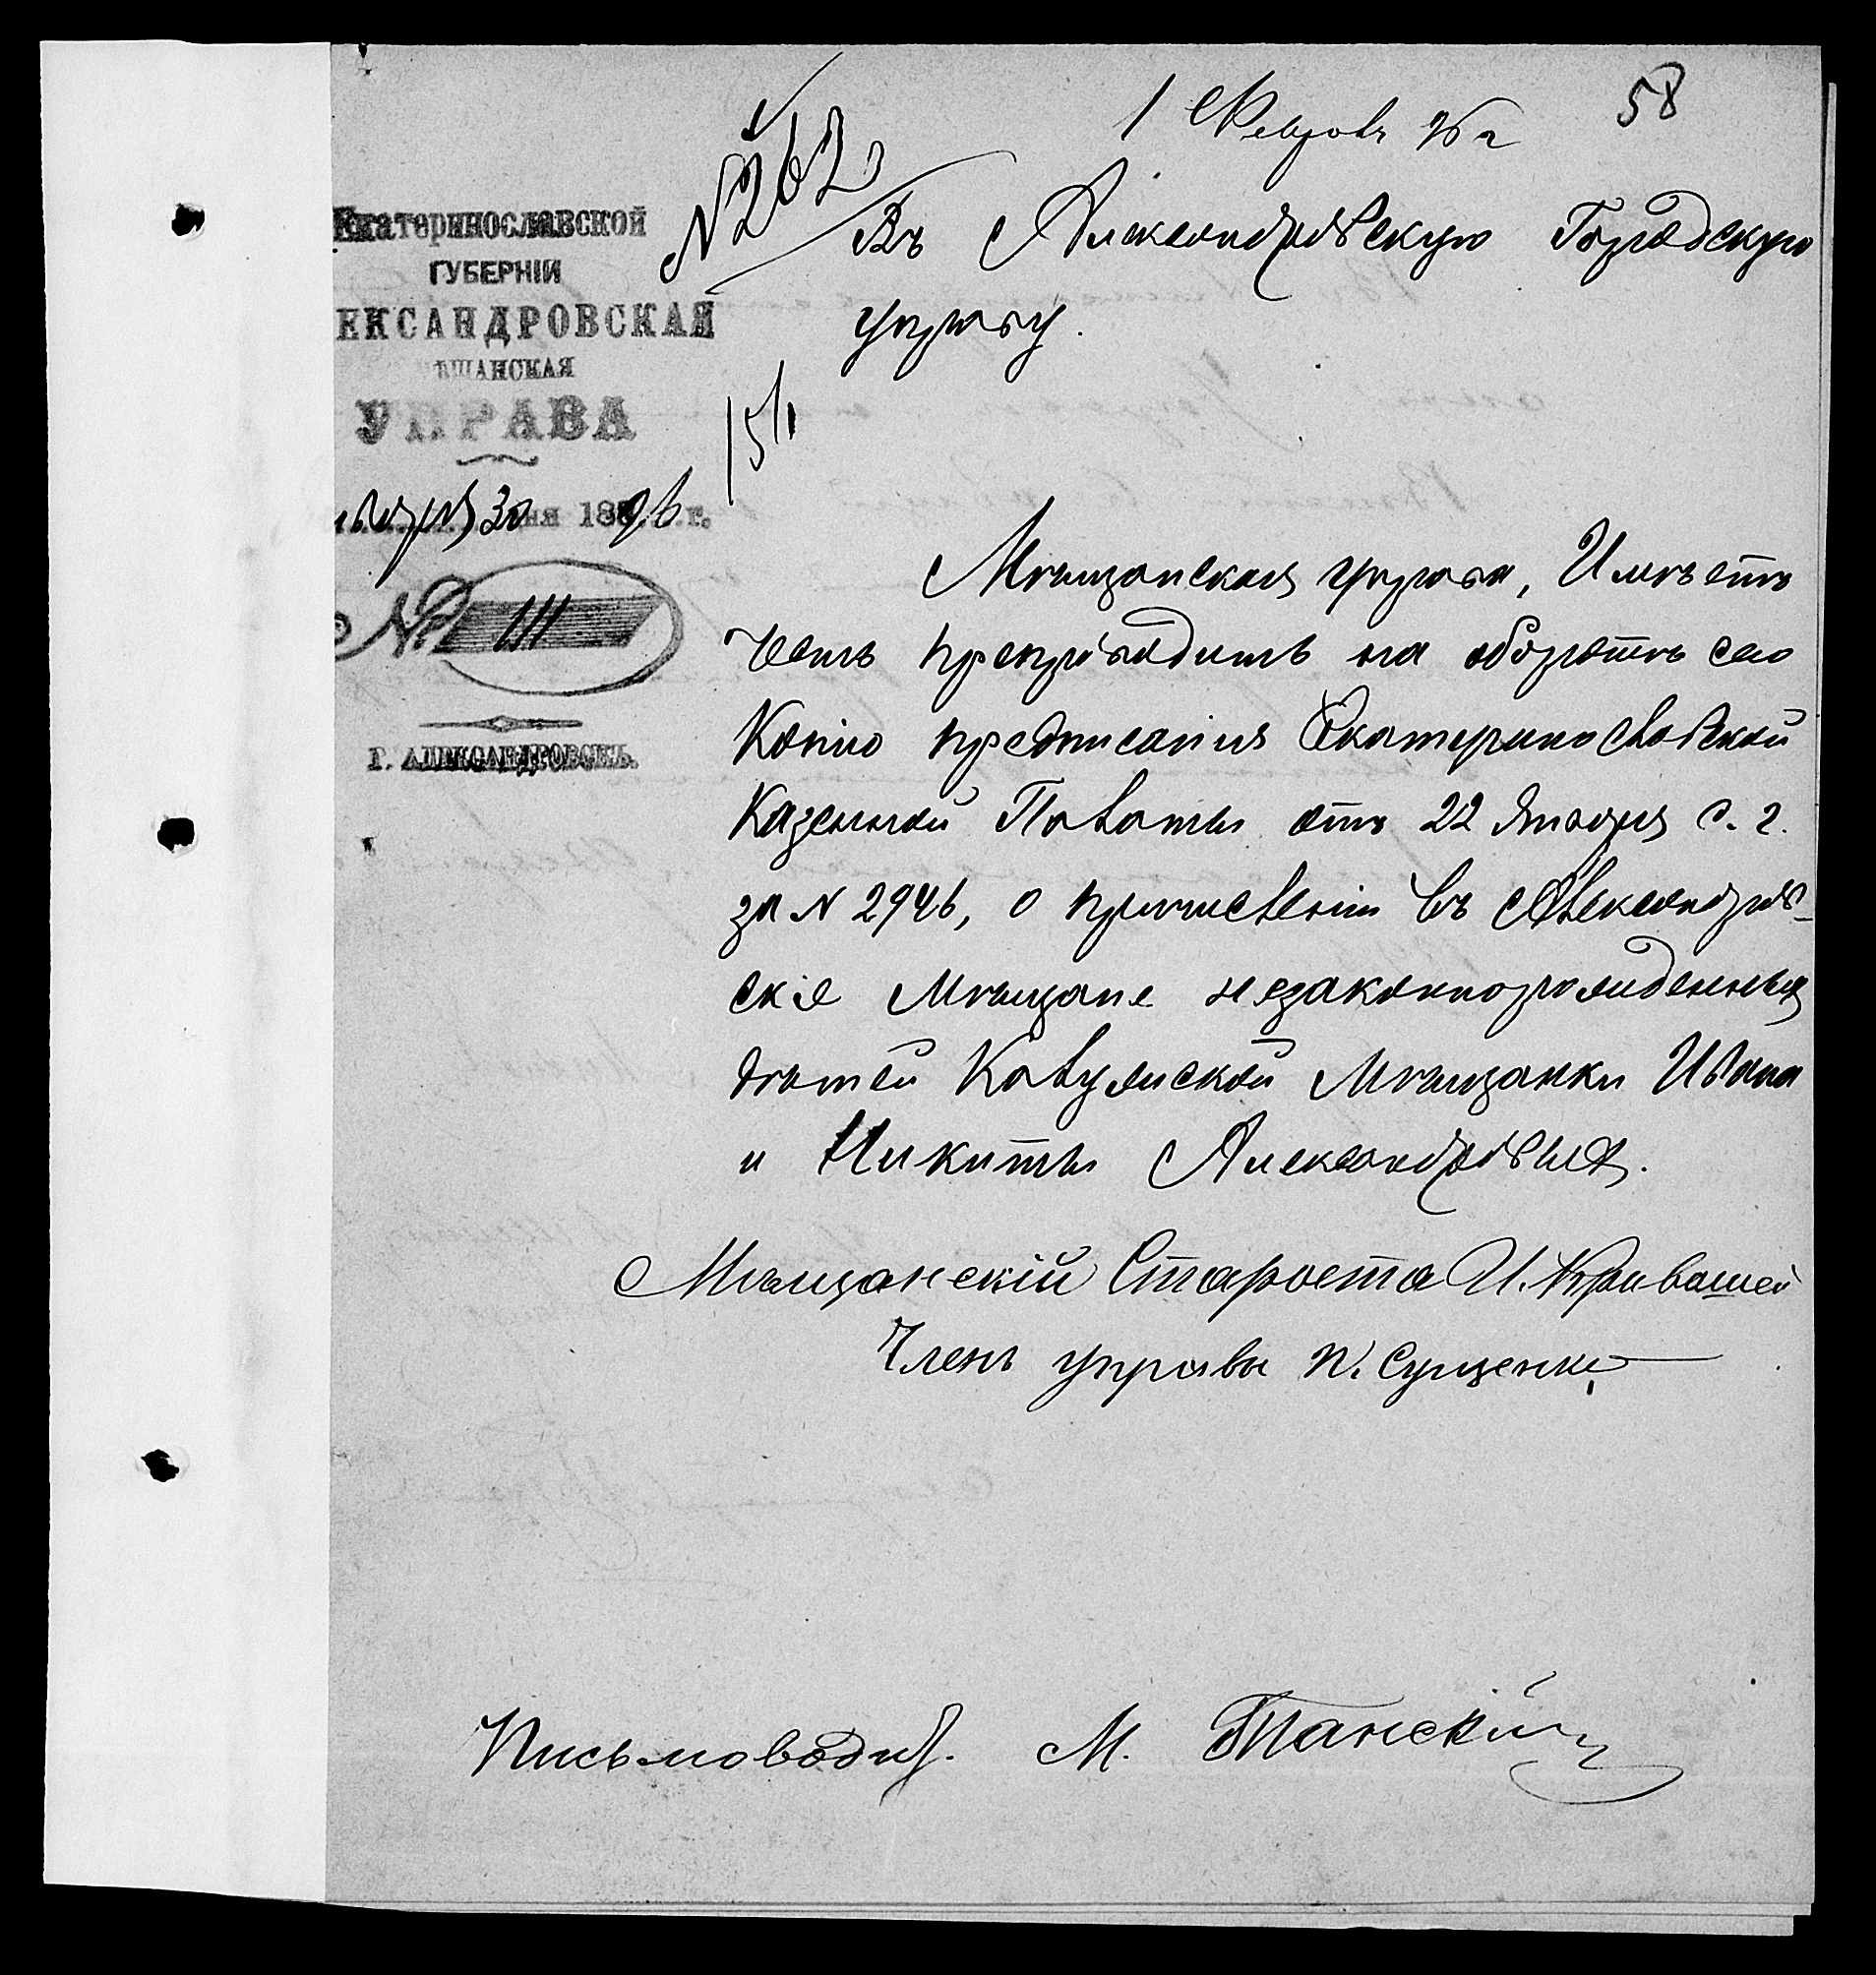 58
1 Февраля 96 г
№ 262
Екатеринославской
ГУБЕРНІИ
ЕКСАНДРОВСКАЯ
ѢЩАНСКАЯ
УПРАВА
Января 30 дня 1896 г.
№ 111
Г. АЛЕКСАНДРОВСКЪ.
Въ Александровскую Городскую
управу.
Мѣщанская управа, Имѣетъ
честь препроводить на оборотѣ сего
Копію предписанія Екатеринославской
Казенной Палаты отъ 22 Января с. г.
за № 2946, о причисленіи въ Александров-
скіе Мѣщане незаконнорожденныхъ
дѣтей Калужской Мѣщанки Ивана
и Никиты Александровыхъ.
Мѣщанскій Староста И. Кривошей
Членъ управы П. Сущенко
Письмоводит. М. Танскій